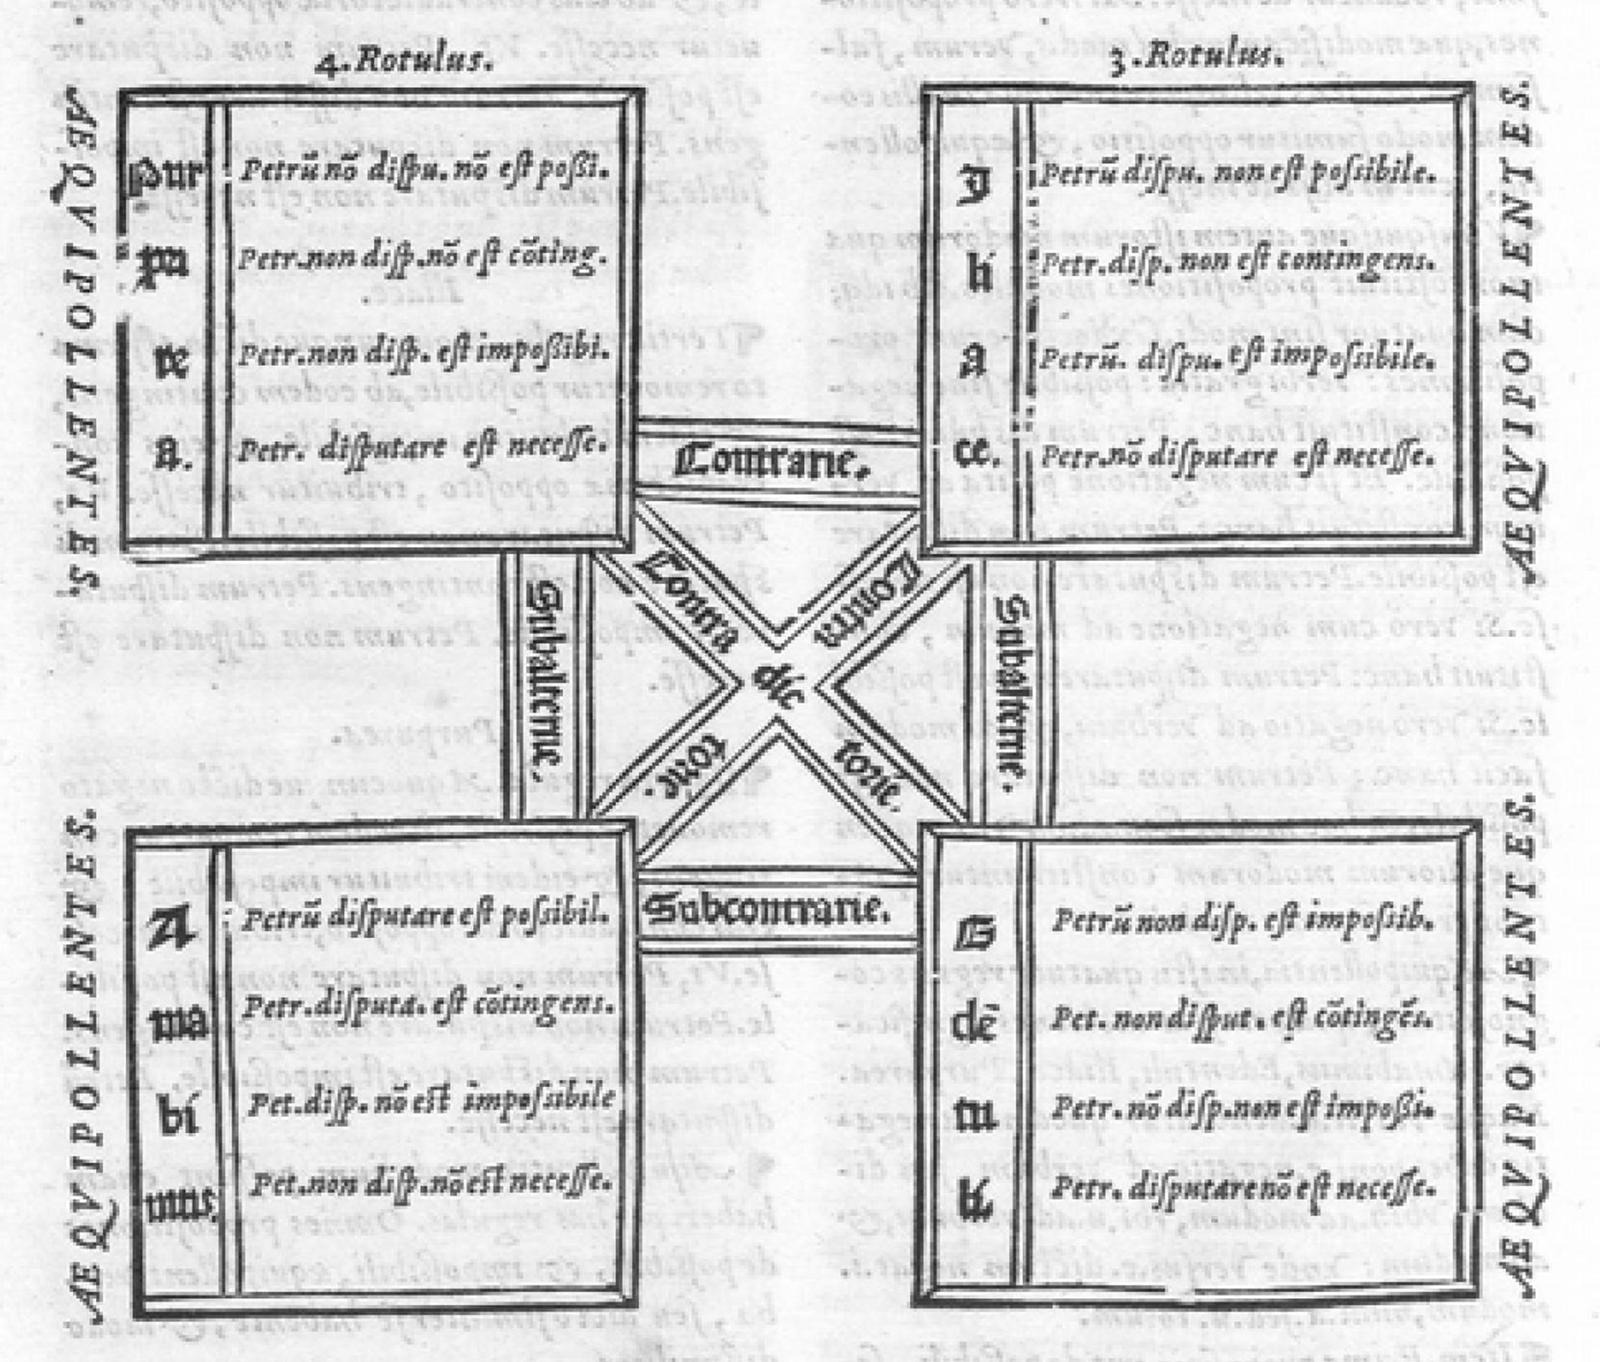 4. Rotulus.
AEQVIPOLLENTES.
Pur Petrũ nõ dispu. nõ est poßi.
pu Petr. non disp. nõ est cõting.
re Petr. non disp. est impoßibi.
a. Petr. disputare est necesse.
3. Rotulus.
I Petrũ dispu. non est possibile.
li Petr. disp. non est contingens.
a Petrũ. dispu. est impossibile.
ce. Petr. nõ disputare est necesse.
AEQVIPOLLENTES
Contrarie.
Contra
Contra
dic
torie.
torie.
Subalterne.
Subalterne.
Subcontrarie.
AEQVIPOLLENTES.
A Petrũ disputare est possibil.
ma Petr. disputa. est cõtingens.
bi Pet. disp. nõ est impossibile
mus. Pet. non disp. nõ est necesse.
E Petrũ non disp. est impossib.
dẽ Pet. non disput. est cõtingẽs.
tu Petr. nõ disp. non est impoßi.
li Petr. disputare nõ est necesse.
AEQVIPOLLENTES.